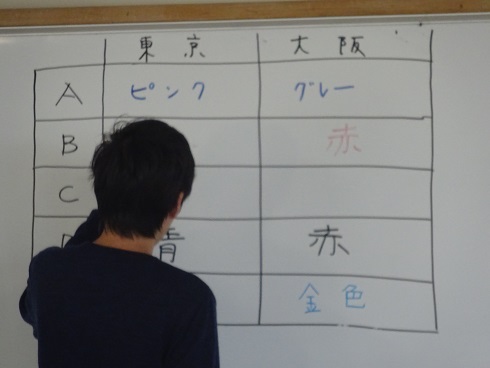 東京 大阪
A ピンク グレー
B 赤
C
青 赤
金色